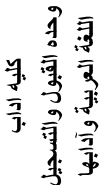 كلية اداب
وحده القبول و التسجيل
اللغة العربية و آدابها